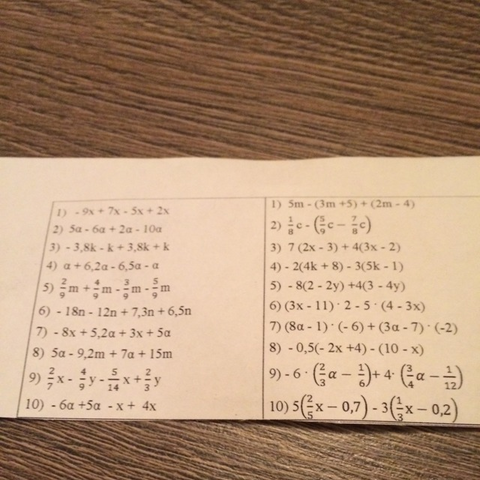 1) - 9x + 7x - 5x + 2x
2) 5α - 6α + 2α - 10α
3) - 3,8k - k + 3,8k + k
4) α + 6,2α - 6,5α - α
5) 2/9 m + 4/9 m - 3/9 m - 5/9 m
6) - 18n - 12n + 7,3n + 6,5n
7) - 8x + 5,2α + 3x + 5α
8) 5α - 9,2m + 7α + 15m
9) 2/7 x - 4/9 y - 5/14 x + 2/3 y
10) - 6α +5α - x + 4x
1) 5m - (3m +5) + (2m - 4)
2) 1/8 c - (5/9 c - 7/8 c)
3) 7 (2x - 3) + 4(3x - 2)
4) - 2(4k + 8) - 3(5k - 1)
5) - 8(2 - 2y) +4(3 - 4y)
6) (3x - 11) · 2 - 5 · (4 - 3x)
7) (8α - 1) · (- 6) + (3α - 7) · (-2)
8) - 0,5(- 2x +4) - (10 - x)
9) - 6 · (2/3 α - 1/6)+ 4· (3/4 α - 1/12)
10) 5(2/5 x - 0,7) - 3(1/3 x - 0,2)